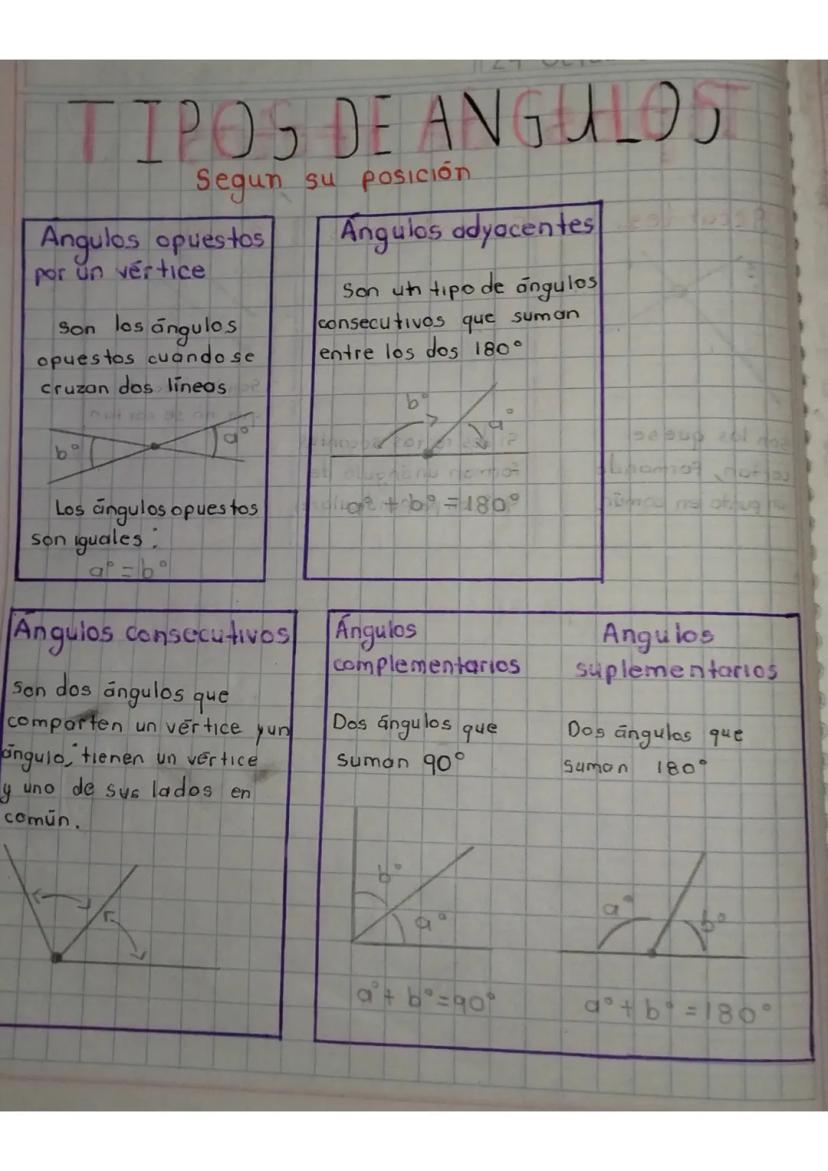 TIPOS DE ANGULOS
Segun su posición
Angulos opuestos
por un vértice
Son los ángulos
opuestos cuando se
cruzan dos líneas
b°
a°
Los ángulos opuestos
son iguales:
a° = b°
Ángulos adyacentes
Son un tipo de ángulos
consecutivos que suman
entre los dos 180°
b°
a°
a° + b° = 180°
Ángulos consecutivos
Son dos ángulos que
comparten un vértice y un
ángulo, tienen un vértice
y uno de sus lados en
común.
Ángulos
complementarios
Dos ángulos que
suman 90°
b°
a°
a° + b° = 90°
Angulos
suplementarios
Dos ángulos que
suman 180°
a°
b°
a° + b° = 180°